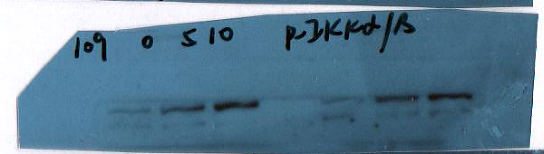 109 0 5 10 p-IKKα/β